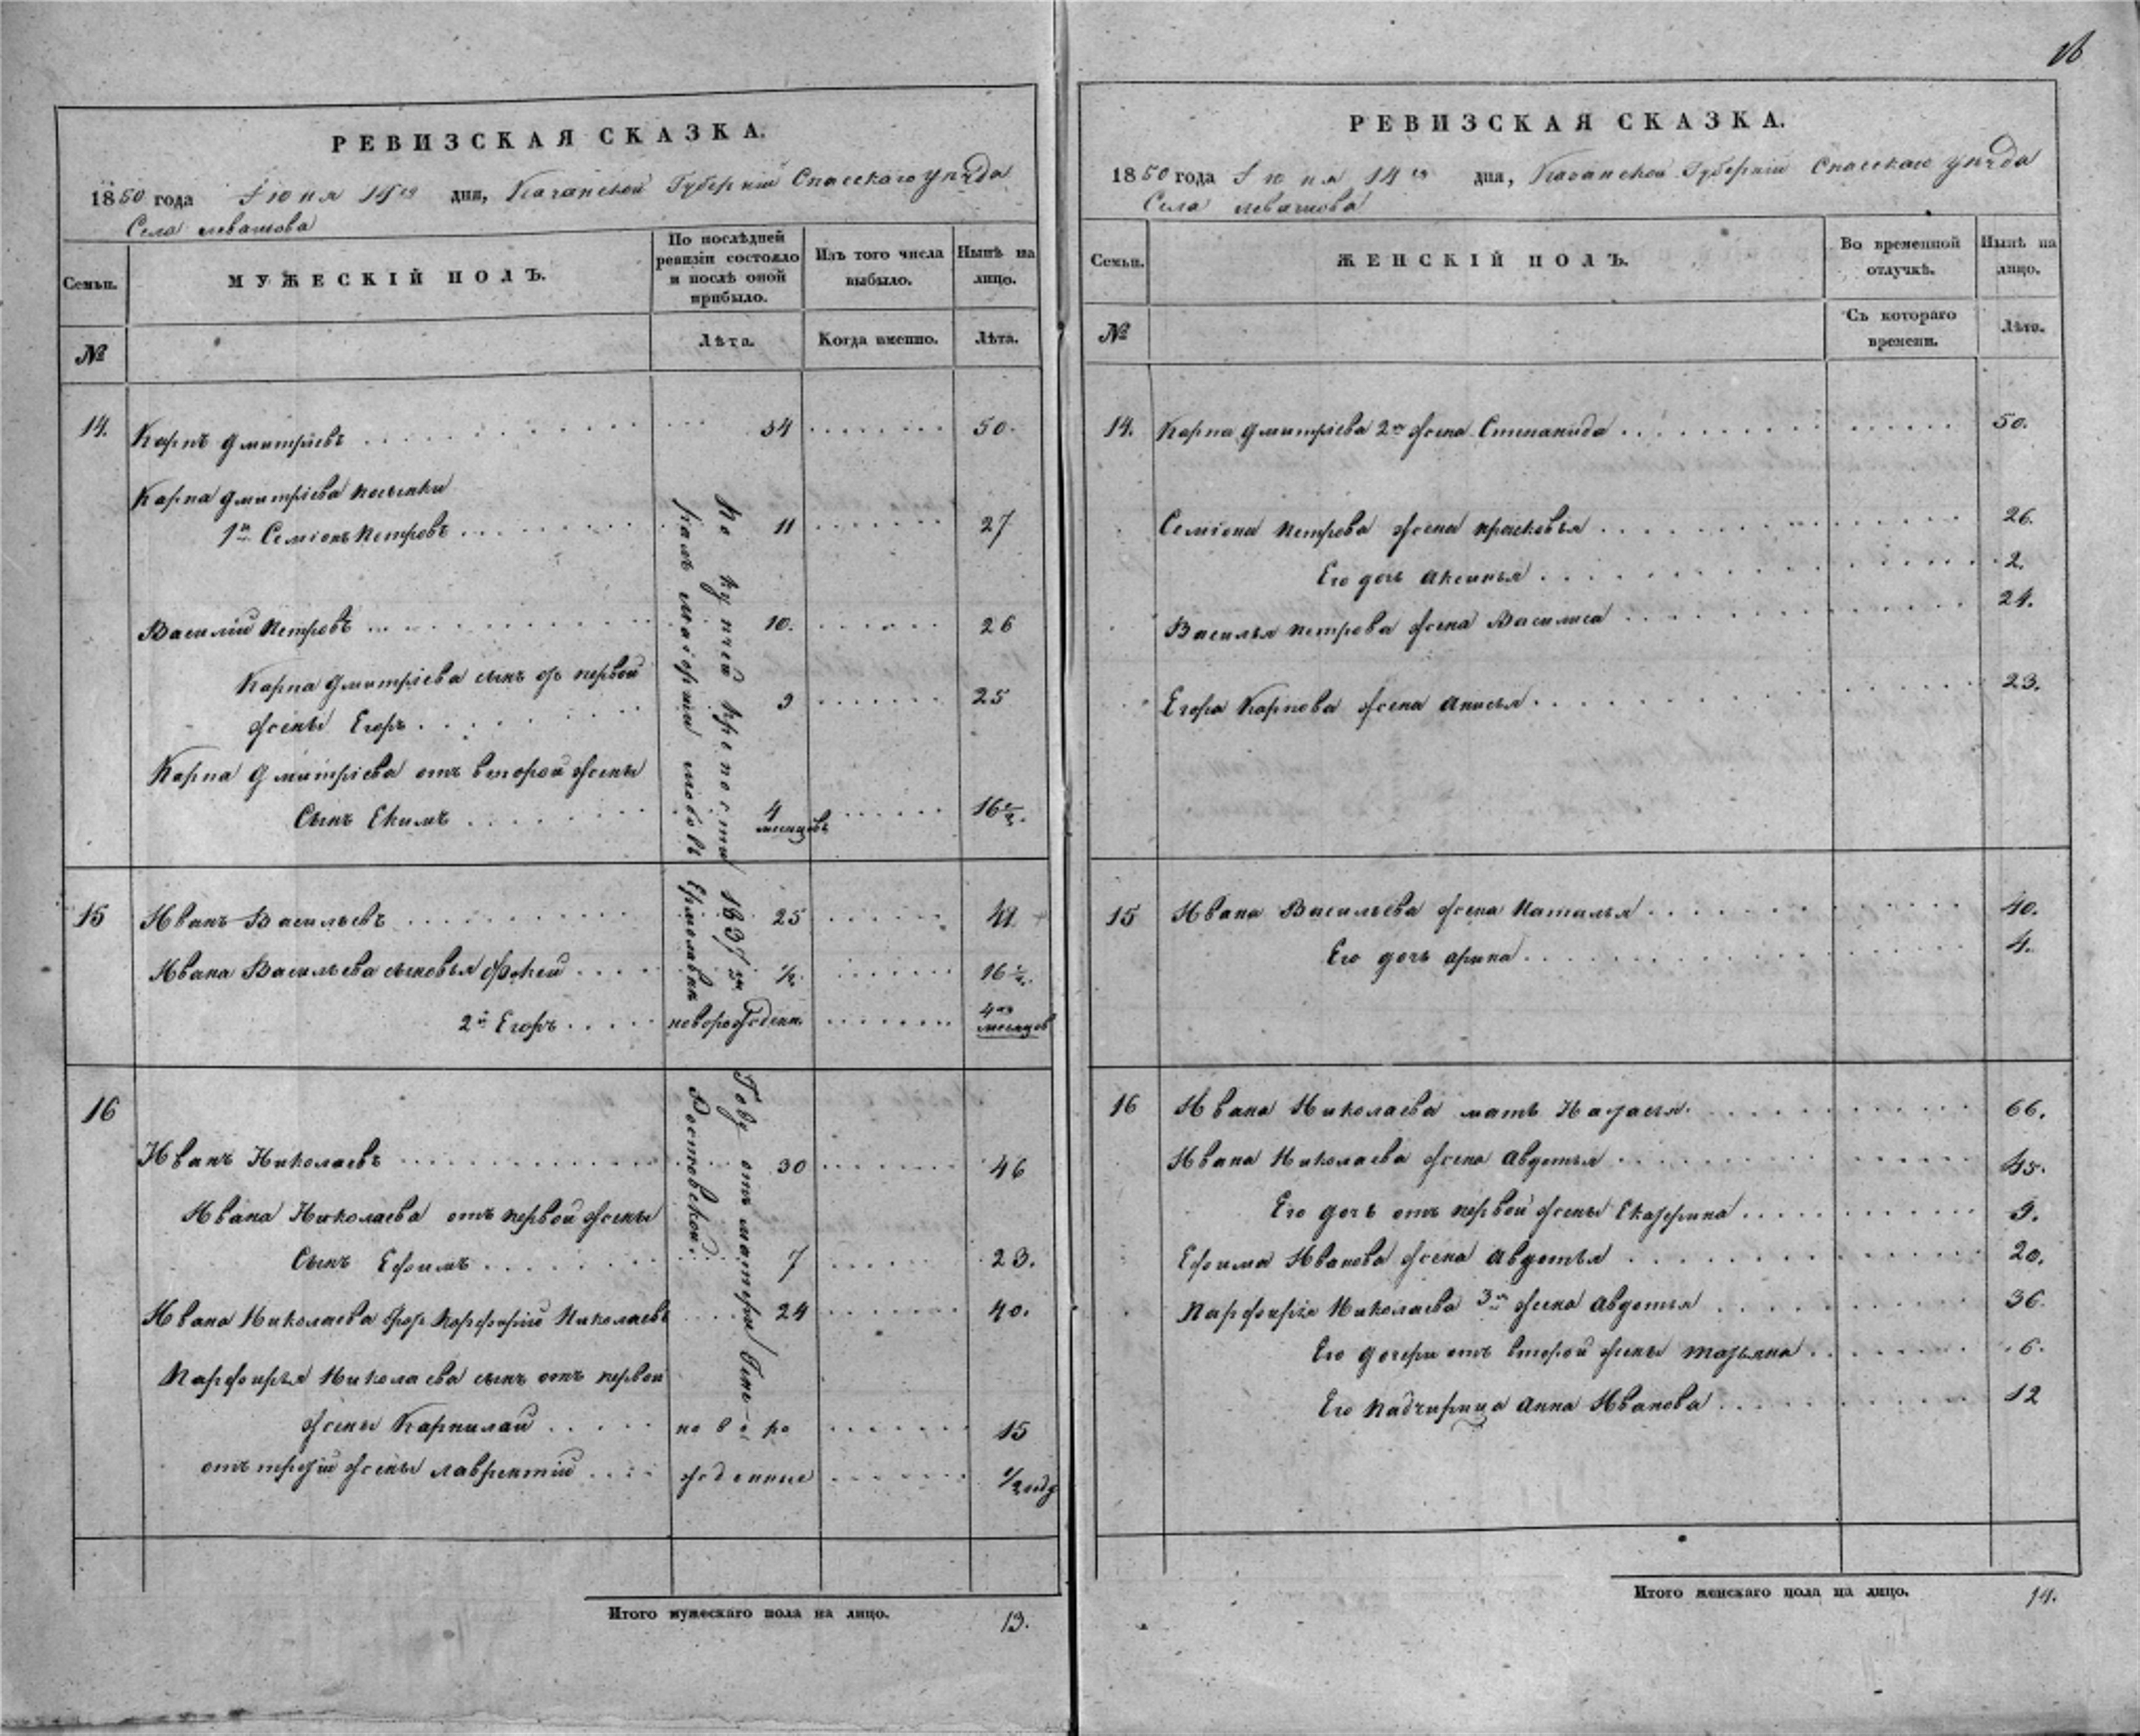 16
РЕВИЗСКАЯ СКАЗКА.
1850 года Іюня 14го дня, Казанской Губерніи Спасскаго уѣзда
Села Левашова
Семьи.
МУЖЕСКІЙ ПОЛЪ.
По послѣдней ревизіи состояло и послѣ оной прибыло.
Изъ того числа выбыло.
Нынѣ на лицо.
№
Лѣта.
Когда именно.
Лѣта.
14. Карпъ Дмитріевъ 34 50.
Карпа Дмитріева пасынки
1й Семіонъ Петровъ 11 27
Василій Петровъ 10. 26
Карпа Дмитріева сынъ отъ первой
жены Егоръ 9 25
Карпа Дмитріева отъ второй жены
Сынъ Екимъ 4 месяцовъ 16 1/2.
15 Иванъ Васильевъ 25 41
Ивана Васильева сыновья Фокей 1/2. 16 1/2.
2й Егоръ новорожденн. 4 месяцов
16
Иванъ Николаевъ 30 46
Ивана Николаева отъ первой жены
Сынъ Ефимъ 7 23.
Ивана Николаева Порфирій Николаевъ 24 40.
Парфирья Николаева сынъ отъ первой
жены Карпилай ново 15
отъ третій жены Лаврентій рожденные 1/2 году
По купчей крепости 1837 го
Году отъ матери
маіорши Любовь Ермолавны
Ростовской.
Итого мужескаго пола на лицо. 13.
РЕВИЗСКАЯ СКАЗКА.
1850 года Іюня 14го дня, Казанской Губерніи Спасскаго уѣзда
Села Левашова
Семьи.
ЖЕНСКІЙ ПОЛЪ.
Во временной отлучкѣ.
Нынѣ на лицо.
№
Съ котораго времени.
Лѣта.
14. Карпа Дмитріева 2я жена Степанида 50.
Семіона Петрова жена Прасковья 26.
Его дочь Аксинья 2.
Василья Петрова жена Василиса 24.
Егора Карпова жена Анисья 23.
15 Ивана Васильева жена Наталья 40.
Его дочь Арина 4.
16 Ивана Николаева мать 66.
Ивана Николаева жена Авдотья 45.
Его дочь отъ первой жены Екатерина 9.
Ефима Иванова жена Авдотья 20.
Парфирія Николаева 3я жена Авдотья 36.
Его дочери отъ второй жены Татьяна 6.
Его падчирица Анна Иванова 12
Итого женскаго пола на лицо. 14.